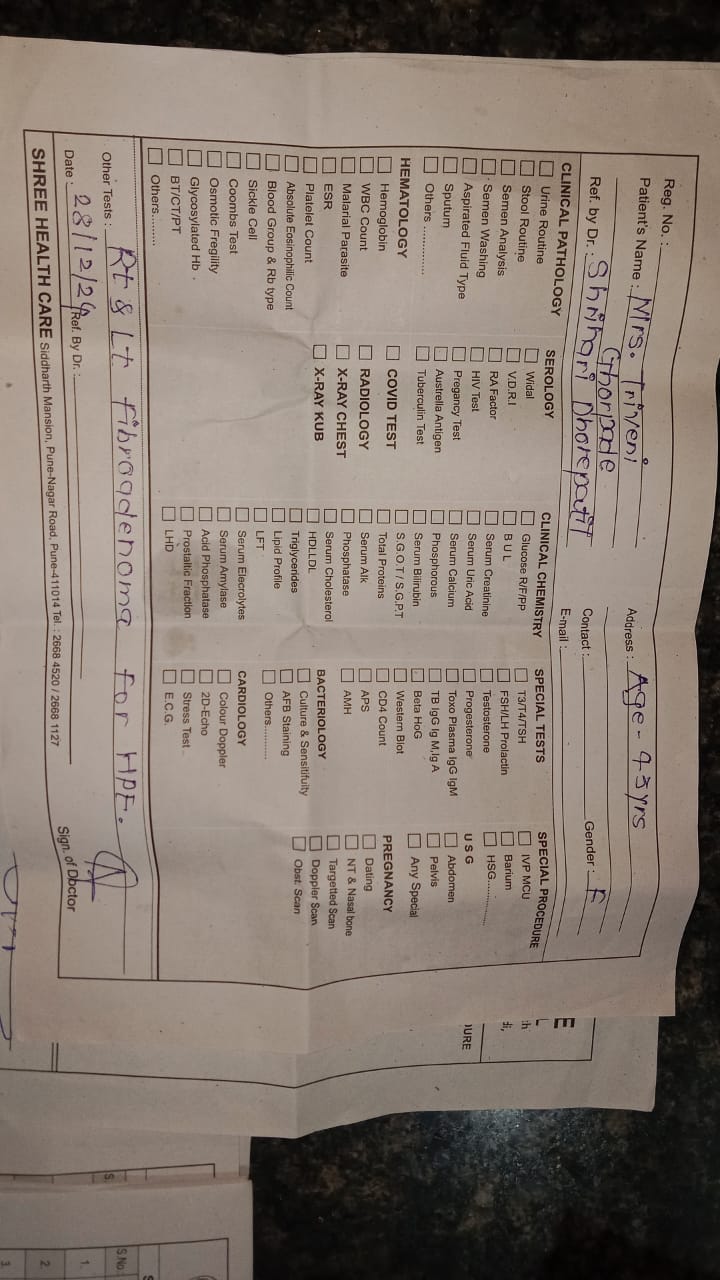 Reg. No. :
Patient's Name : Mrs. Triveni
Ghorpade
Ref. by Dr. : Shrihari Dhorepatil
Address : Age - 45 yrs
Gender : F
Contact :
E-mail :
CLINICAL PATHOLOGY
Urine Routine
Stool Routine
Semien Analysis
Semen Washing
Aspirated Fluid Type
Sputum
Others ..............
HEMATOLOGY
Hemoglobin
WBC Count
Malarial Parasite
ESR
Platelet Count
Absolute Eosinophilic Count
Blood Group & Rb type
Sickle Cell
Coombs Test
Osmotic Fregility
Glycosylated Hb .
BT/CT/PT
Others.........
SEROLOGY
Widal
V.D.R.I
RA Factor
HIV Test
Pregancy Test
Austrella Antigen
Tuberculin Test
COVID TEST
RADIOLOGY
X-RAY CHEST
X-RAY KUB
CLINICAL CHEMISTRY
Glucose R/F/PP
B U L
Serum Creathine
Serum Uric Acid
Serum Calcium
Phosphorous
Serum Bilirubin
S.G.O.T / S.G.P.T
Total Proteins
Serum Alk
Phosphatase
Serum Cholesterol
HDLLDL
Triglycerides
Lipid Profile
LFT
Serum Elecrolytes
Serum Amylase
Acid Phosphatase
Prostallic Fraction
LHD
SPECIAL TESTS
T3/T4/TSH
FSH/LH Prolactin
Testosterone
Progesterone
Toxo Plasma IgG IgM
TB IgG Ig M,Ig A
Beta HoG
Western Blot
CD4 Count
APS
AMH
BACTERIOLOGY
Culture & Sensitifuity
AFB Staining
Others..........
CARDIOLOGY
Colour Doppler
2D-Echo
Stress Test
E.C.G.
SPECIAL PROCEDURE
IVP MCU
Barium
HSG..............
U S G
Abdomen
Pelvis
Any Special
PREGNANCY
Dating
NT & Nasal bone
Targetted Scan
Doppler Scan
Obst. Scan
Other Tests : Rt & Lt fibroadenoma for HPE.
Date : 28/12/24 Ref. By Dr. :
Sign. of Doctor
SHREE HEALTH CARE Siddharth Mansion, Pune-Nagar Road, Pune-411014 Tel. : 2668 4520 / 2668 1127
S.No.
1.
2.
3.